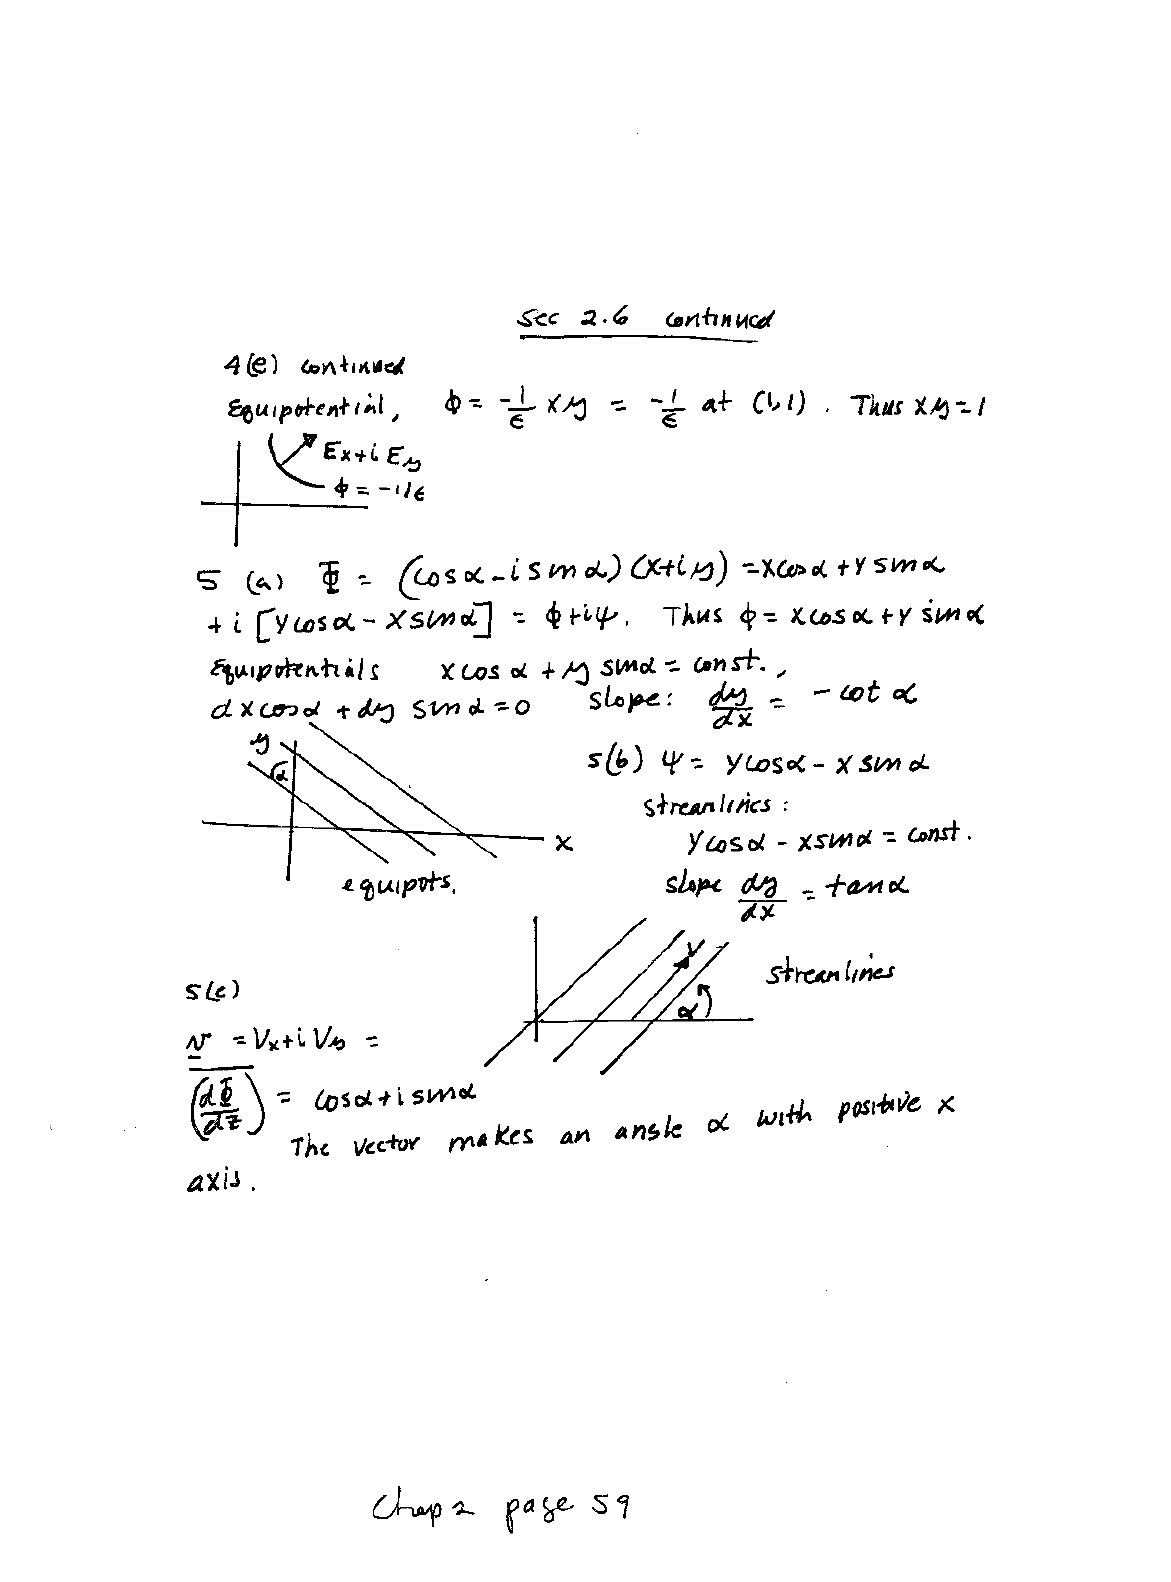 Sec 2.6 continued
4(e) continued
Equipotential, ϕ = -1/ε xy = -1/ε at (1,1). Thus xy=1
Ex+i Ey
ϕ = -1/ε
5 (a) Φ = (cosα - i sinα)(x+iy) = xcosα + y sinα
+ i [ycosα - x sinα] = ϕ+iψ. Thus ϕ = x cosα + y sinα
Equipotentials x cosα + y sinα = const.,
dx cosα + dy sinα = 0 slope: dy/dx = - cot α
y
α
x
equipots.
5(b) ψ = ycosα - x sinα
streamlines:
ycosα - xsinα = const.
slope dy/dx = tanα
v
α
streamlines
5(c)
v = Vx+i Vy =
(dΦ/dz)‾ = cosα + i sinα
The vector makes an angle α with positive x
axis.
Chap 2 page 59